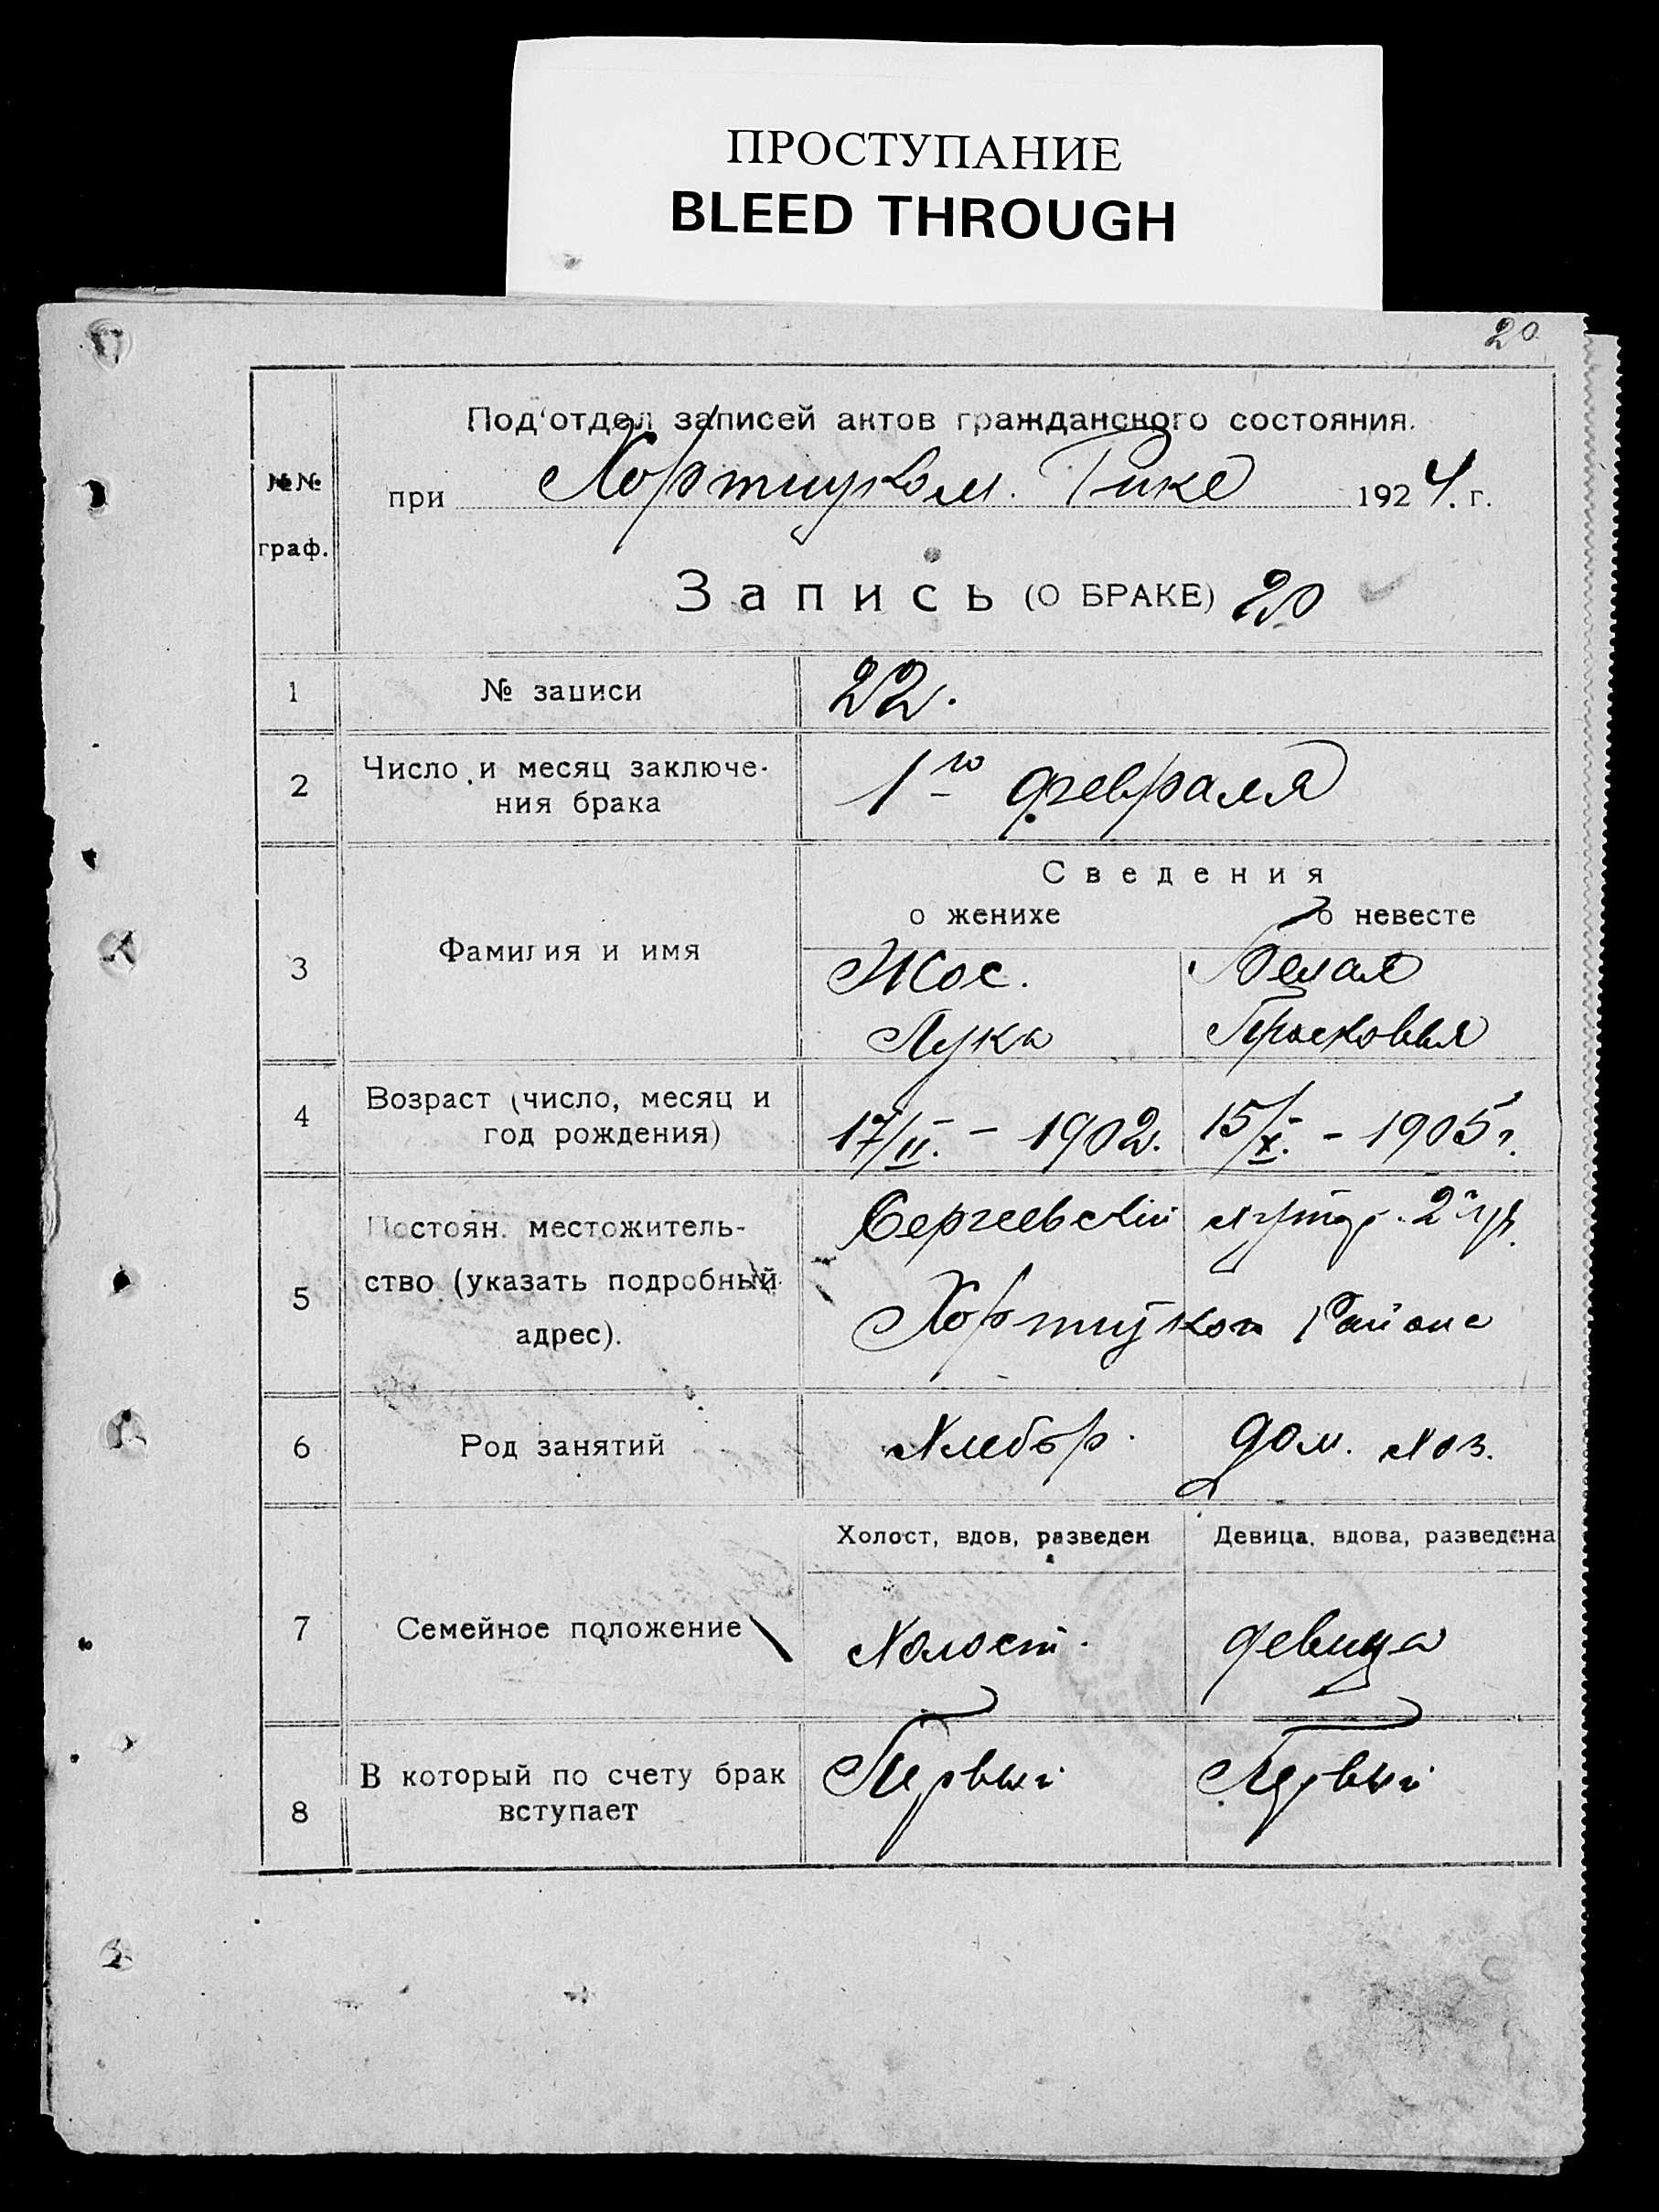 ПРОСТУПАНИЕ
BLEED THROUGH
20
№№ граф.
Под'отдел записей актов гражданского состояния.
при Хортицком. Рике 1924. г.
Запись (О БРАКЕ) 20
1 № записи 22.
2 Число и месяц заключе-
ния брака
1го февраля
Сведения
о женихе о невесте
3 Фамилия и имя
Жос. Белая
Лука Прасковья
4 Возраст (число, месяц и
год рождения)
17/II. - 1902. 15/X. - 1905 г.
5 Постоян. местожитель-
ство (указать подробный
адрес).
Сергеевский
Хортицкого Района
6 Род занятий Хлебор. Дом. хоз.
Холост, вдов, разведен Девица, вдова, разведена
7 Семейное положение Холост. девица
8 В который по счету брак
вступает
Первый Первый